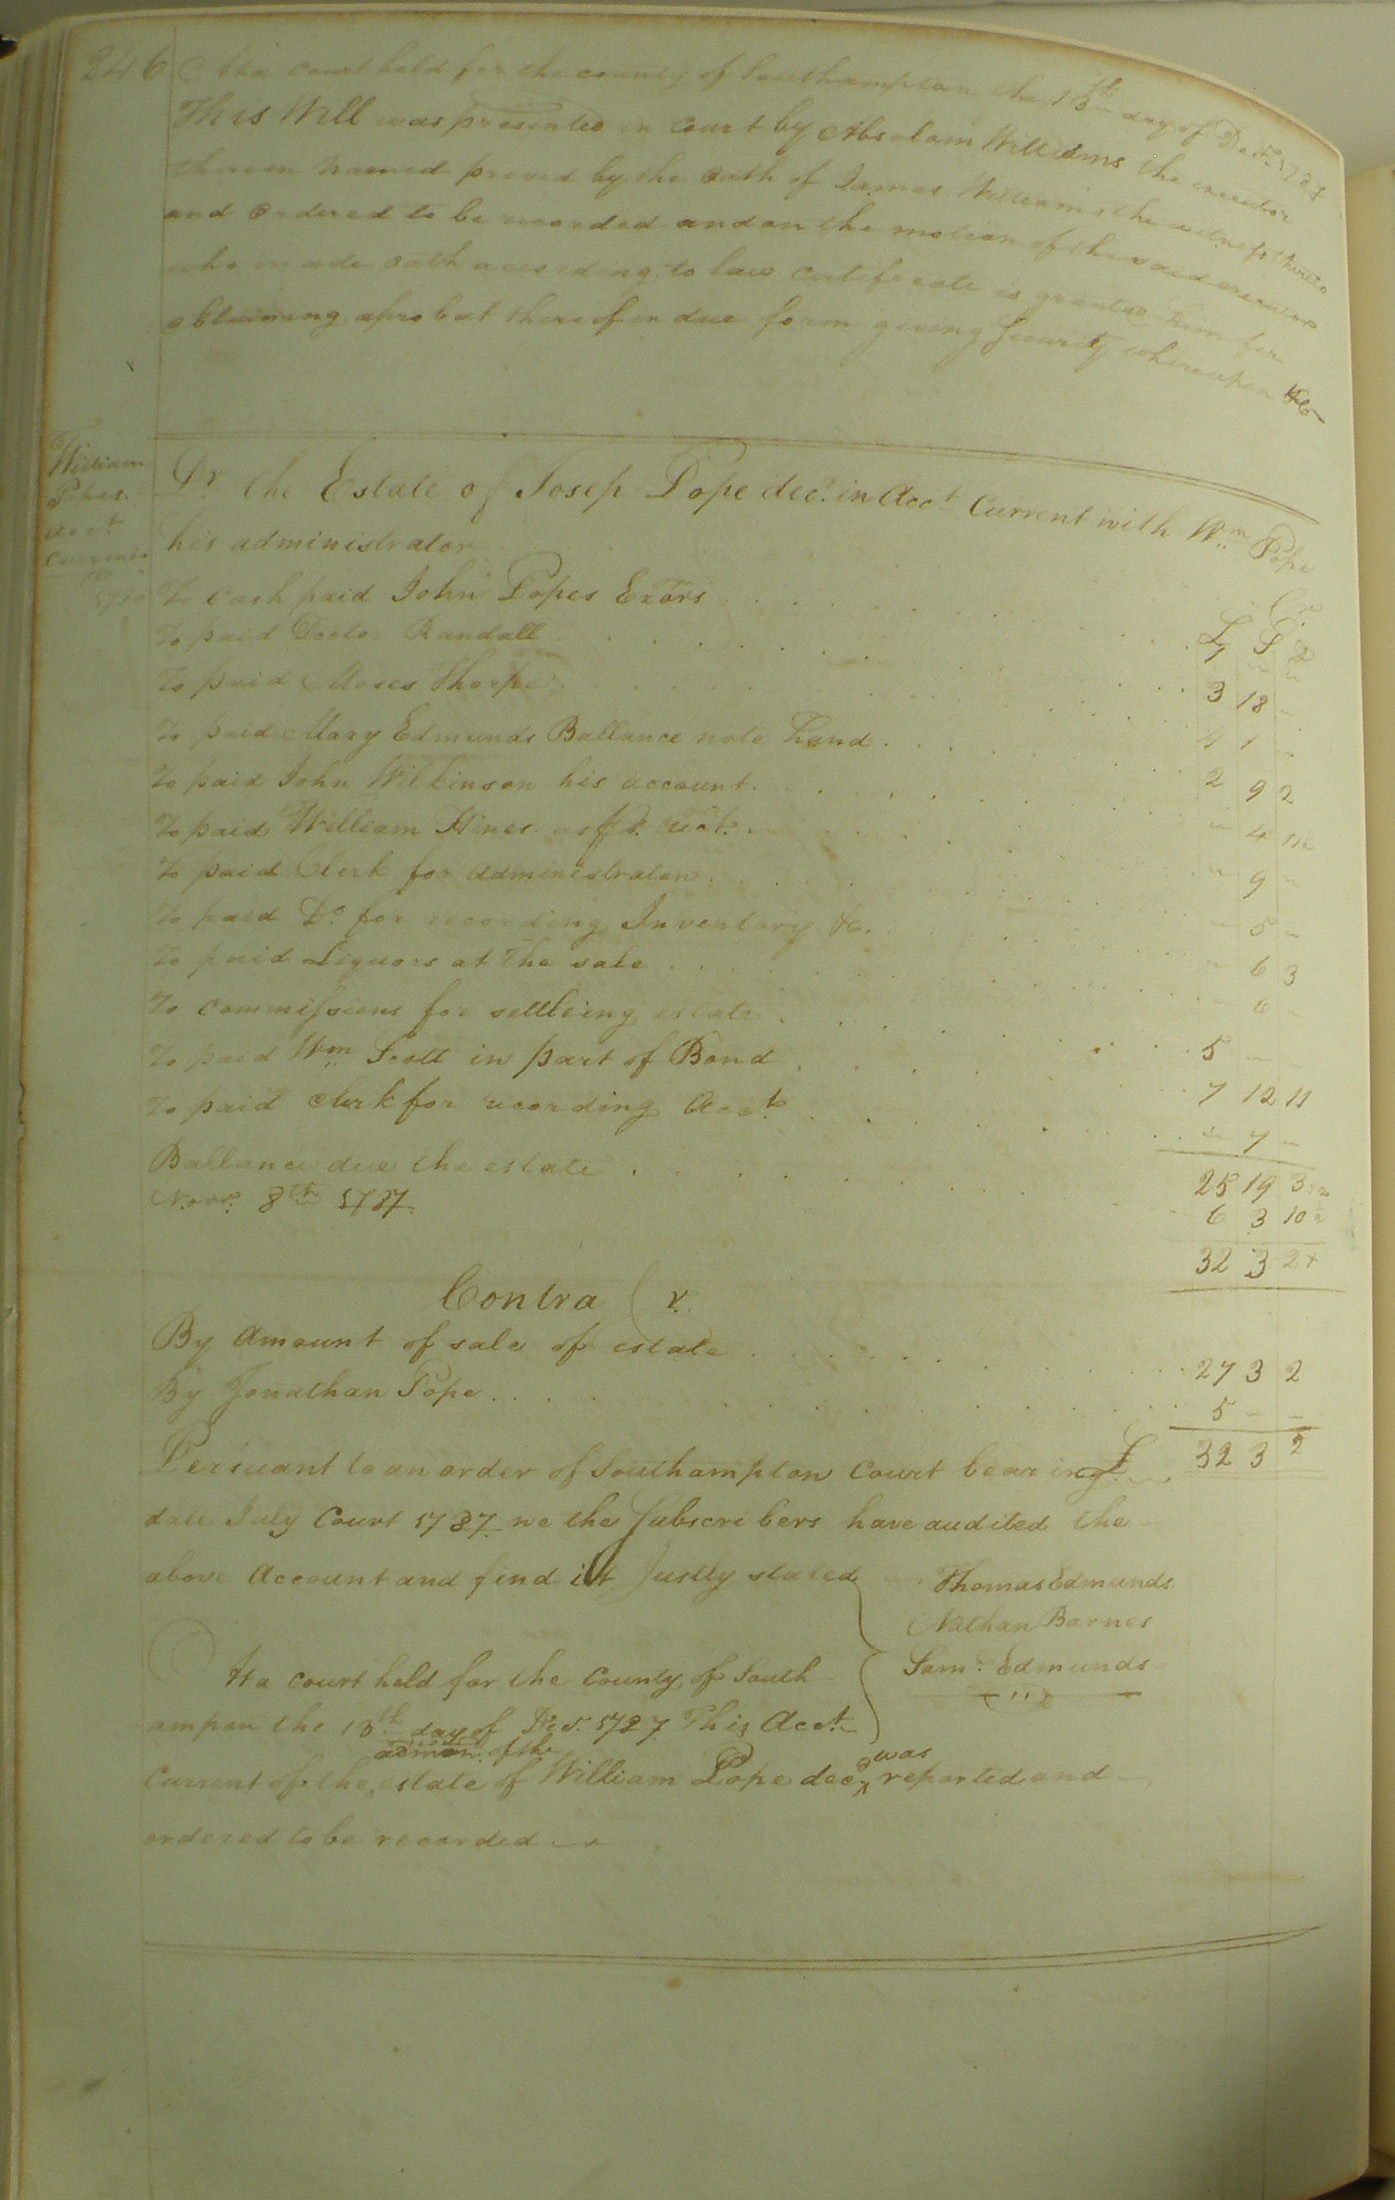 246
At a court held for the county of Southampton the 13th day of Decr. 1787
This Will was presented in court by Absolam Williams the executor
therein named proved by the oath of James Williams the witness thereto
and ordered to be recorded and on the motion of the said executor
who made oath according to law certificate is granted him for
obtaining a probat thereof in due form giving security whereupon &c
William
Popes
acct.
Current
Dr. the Estate of Josep Pope decd. in Acct Current with Wm Pope
his administrator Cr.
£ S D
To cash paid John Popes Exors 1 " "
To paid Doctor Randall 3 18 "
To paid Moses Thorpe 4 1 "
To paid Mary Edmunds Ballance note hand 2 9 2
To paid John Wilkinson his account " 4 11½
To paid William Hines as pr. rect. " 9 "
To paid Clerk for administration " 5 "
To paid Do for recording Inventory &c. " 6 3
To paid Liquors at the sale " 6 "
To commissions for settleing estate 5 "
To paid Wm Scott in part of Bond 7 12 11
To paid clerk for recording Acct. " 7 "
25 19 3½
Ballance due the estate 6 3 10½
Novr. 8th 1787 32 3 2
Contra Cr.
By amount of sale of estate 27 3 2
By Jonathan Pope 5 – –
£ 32 3 2
Persuant to an order of Southampton Court bearing
date July Court 1787 we the Subscribers have audited the
above Account and find it Justly stated
Thomas Edmunds
Nathan Barnes
Saml. Edmunds
At a court held for the County of South
ampon the 13th day of Decr. 1787 This Acct.
Current of the admon. of the estate of William Pope decd was reported and
ordered to be recorded